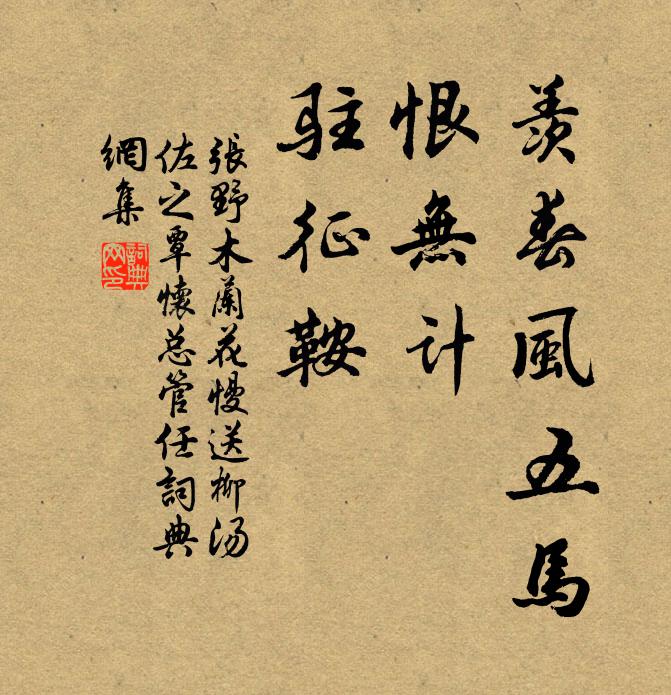 羨春風五馬
恨無計
駐征鞍
張野木蘭花慢送柳汤
佐之覃懷总管任詞典
網集
詞典网印